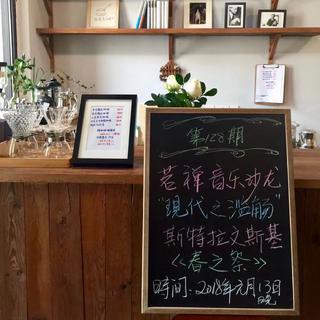 第128期
若禅音乐沙龙
“现代之滥觞”
斯特拉文斯基
《春之祭》
时间：2018年元月13日
晚